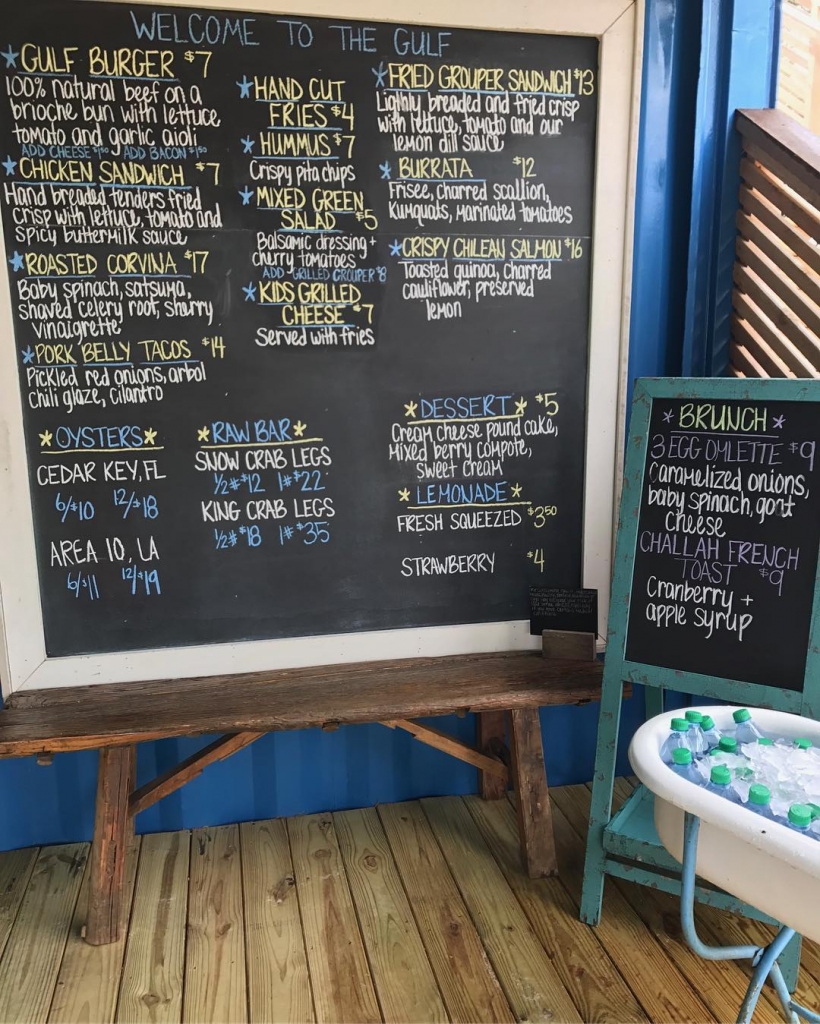 WELCOME TO THE GULF
GULF BURGER $7
100% natural beef on a
brioche bun with lettuce
tomato and garlic aioli
ADD CHEESE $1.50 ADD BACON $1.50
CHICKEN SANDWICH $7
Hand breaded tenders fried
crisp with lettuce, tomato and
spicy buttermilk sauce
ROASTED CORVINA $17
Baby spinach, satsuma,
shaved celery root, sharry
vinaigrette
PORK BELLY TACOS $14
Pickled red onions, arbol
chili glaze, cilantro
HAND CUT
FRIES $4
HUMMUS $7
Crispy pita chips
MIXED GREEN
SALAD $5
Balsamic dressing +
cherry tomatoes
ADD GRILLED GROUPER $8
KIDS GRILLED
CHEESE $7
Served with fries
FRIED GROUPER SANDWICH $13
Ligthly breaded and fried crisp
with lettuce, tomato and our
lemon dill sauce
BURRATA $12
Frisee, charred scallion,
Kumquats, marinated tomatoes
CRISPY CHILEAN SALMON $16
Toasted quinoa, charred
cauliflower, preserved
lemon
OYSTERS
CEDAR KEY, FL
6/$10 12/$18
AREA 10, LA
6/$11 12/$19
RAW BAR
SNOW CRAB LEGS
½# $12 1# $22
KING CRAB LEGS
½# $18 1# $35
DESSERT $5
Cream cheese pound cake,
Mixed berry compote,
sweet cream
LEMONADE
FRESH SQUEEZED $3.50
STRAWBERRY $4
BRUNCH
3 EGG OMLETTE $9
Caramelized onions,
baby spinach, goat
cheese
CHALLAH FRENCH
TOAST $9
Cranberry +
apple syrup